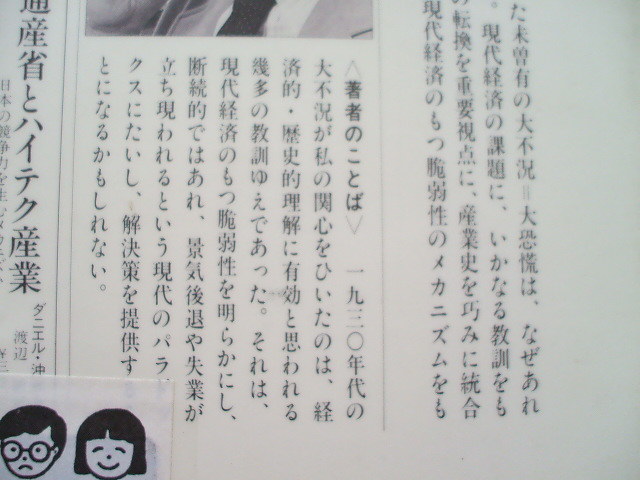 た未曽有の大不況=大恐慌は、なぜあれ
。現代経済の課題に、いかなる教訓をも
の転換を重要視点に、産業史を巧みに統合
現代経済のもつ脆弱性のメカニズムをも
〈著者のことば〉 一九三〇年代の
大不況が私の関心をひいたのは、経
済的・歴史的理解に有効と思われる
幾多の教訓ゆえであった。それは、
現代経済のもつ脆弱性を明らかにし、
断続的ではあれ、景気後退や失業が
立ち現われるという現代のパラ
クスにたいし、解決策を提供す
とになるかもしれない。
通産省とハイテク産業
日本の競争力を生む
ダニエル・沖
渡辺